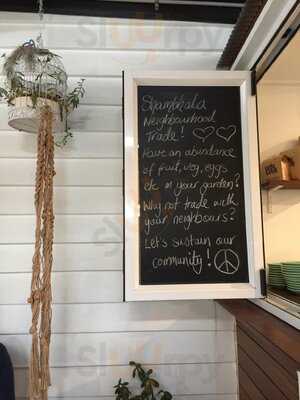 Shambhala
Neighbourhood
Trade!
Have an abundance
of fruit, veg, eggs
etc in your garden?
Why not trade with
your neighbours?
Let's sustain our
community!